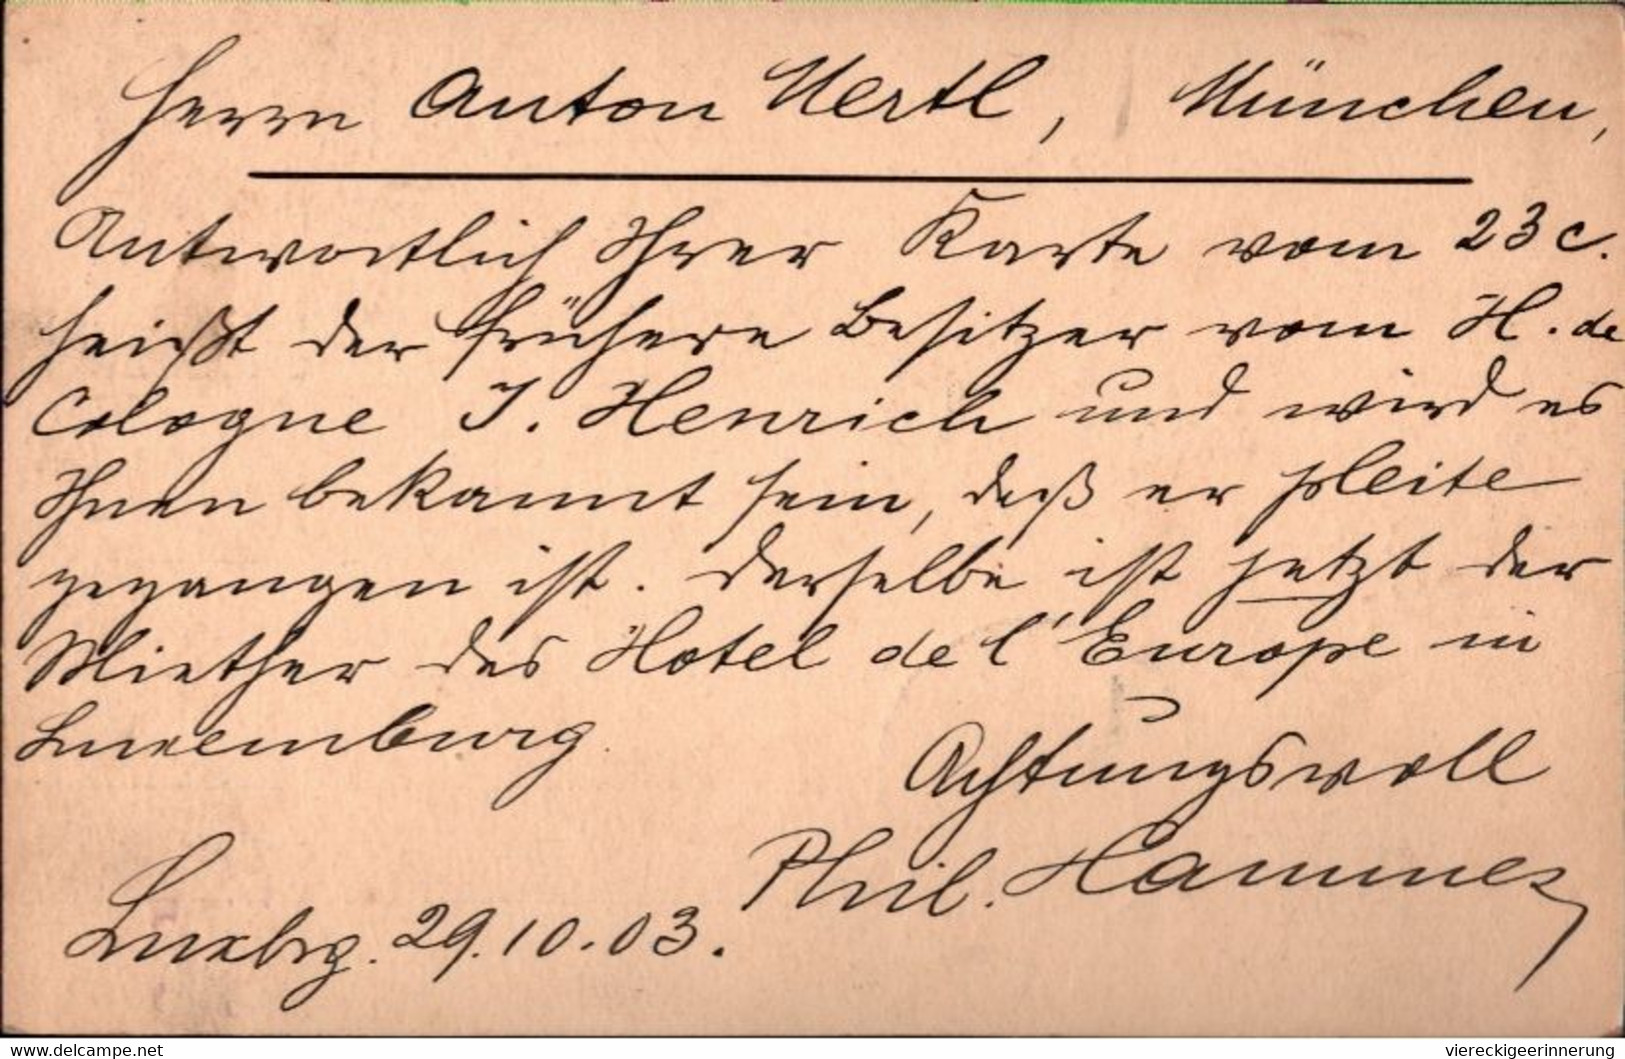 Herrn Anton Uertl, München,
Antwortlich Ihrer Karte vom 23 c.
heißt der frühere Besitzer vom H. de
Cologne J. Henrich und wird es
Ihnen bekannt sein, daß er pleite
gegangen ist. Derselbe ist jetzt der
Miether des Hotel de l'Europe in
Luxemburg.
Achtungsvoll
Phil. Hammes
Luxbrg. 29.10.03.
www.delcampe.net
viereckigeerinnerung